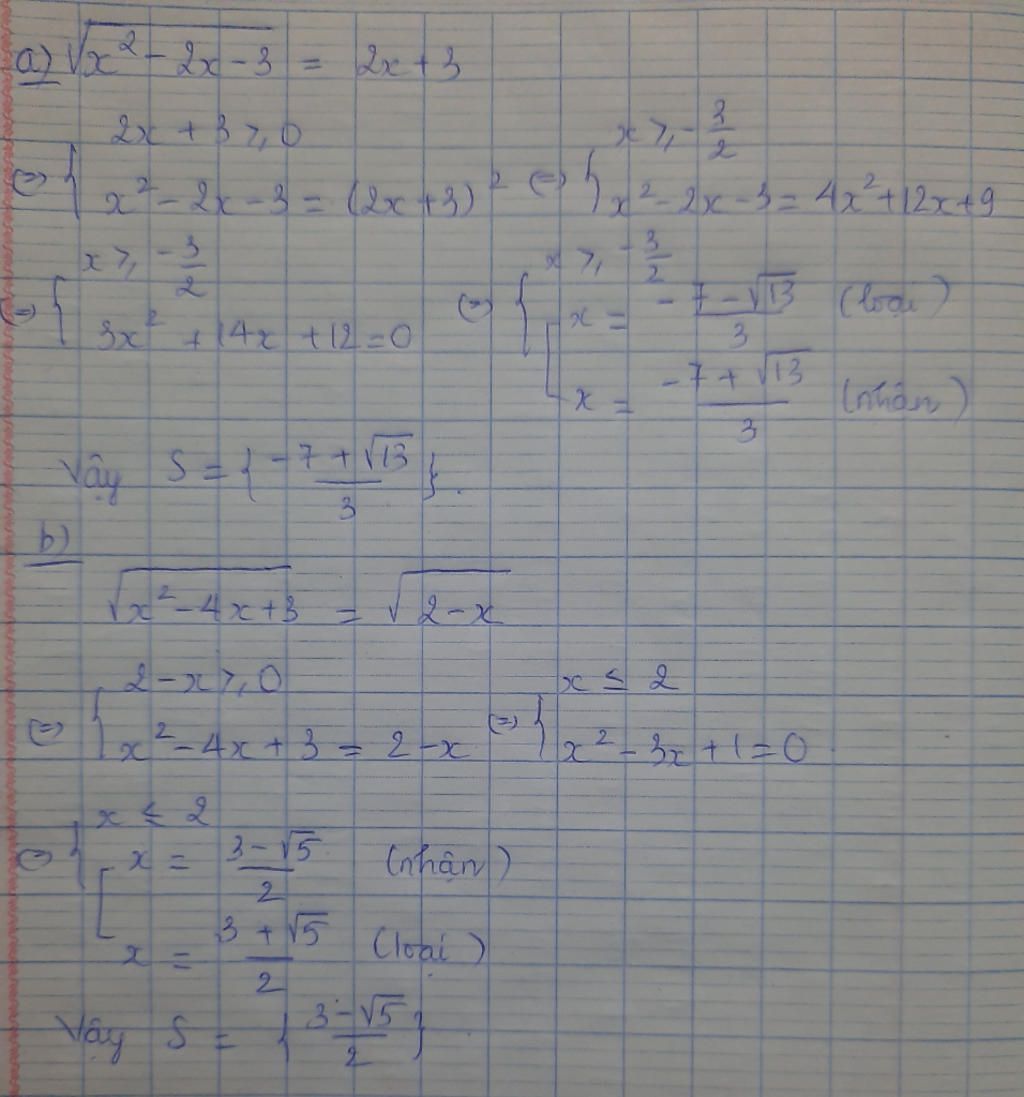 a) √(x² - 2x - 3) = 2x + 3
⇔ { 2x + 3 ⩾ 0
x² - 2x - 3 = (2x + 3)² ⇔ { x ⩾ -3/2
x² - 2x - 3 = 4x² + 12x + 9
⇔ { x ⩾ -3/2
3x² + 14x + 12 = 0
⇔ { x ⩾ -3/2
[ x = (-7 - √13)/3 (loại)
x = (-7 + √13)/3 (nhận)
Vậy S = { (-7 + √13)/3 }.
b)
√(x² - 4x + 3) = √(2 - x)
⇔ { 2 - x ⩾ 0
x² - 4x + 3 = 2 - x ⇔ { x ≤ 2
x² - 3x + 1 = 0
⇔ { x ≤ 2
[ x = (3 - √5)/2 (nhận)
x = (3 + √5)/2 (loại)
Vậy S = { (3 - √5)/2 }